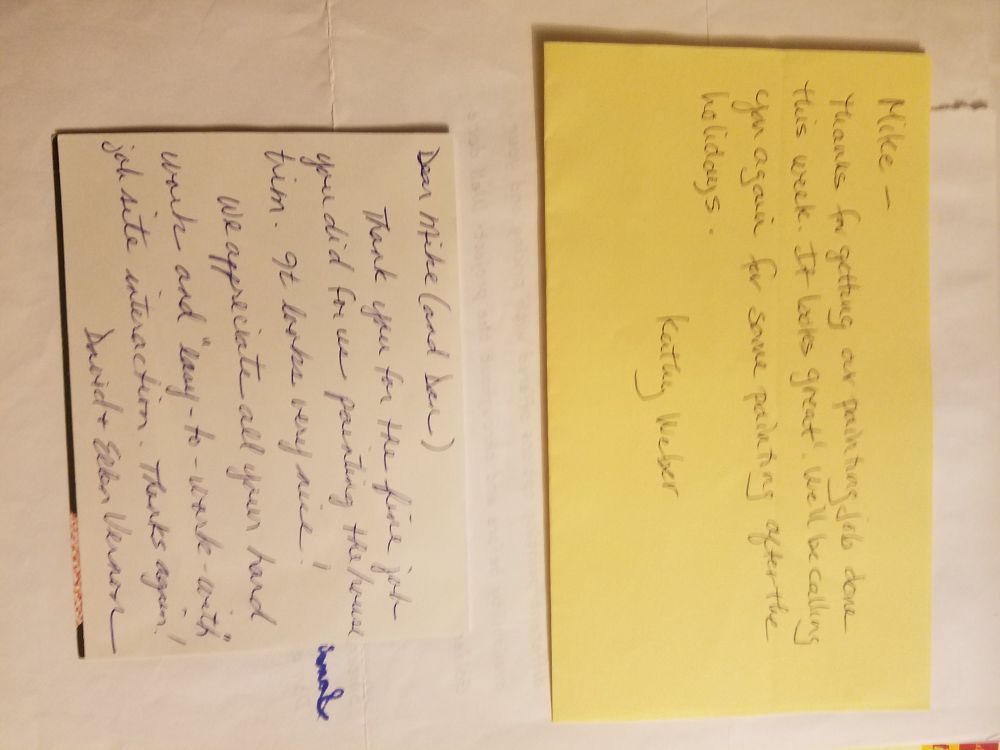 Mike –
Thanks for getting our painting job done
this week. It looks great! We'll be calling
you again for some painting after the
holidays.
Kathy Weber
Dear Mike (and Dew)
Thank you for the fine job
you did for us painting the house
trim. It looks very nice!
We appreciate all your hard
work and "easy-to-work-with"
job site interaction. Thanks again!
David + Ellen Vernon